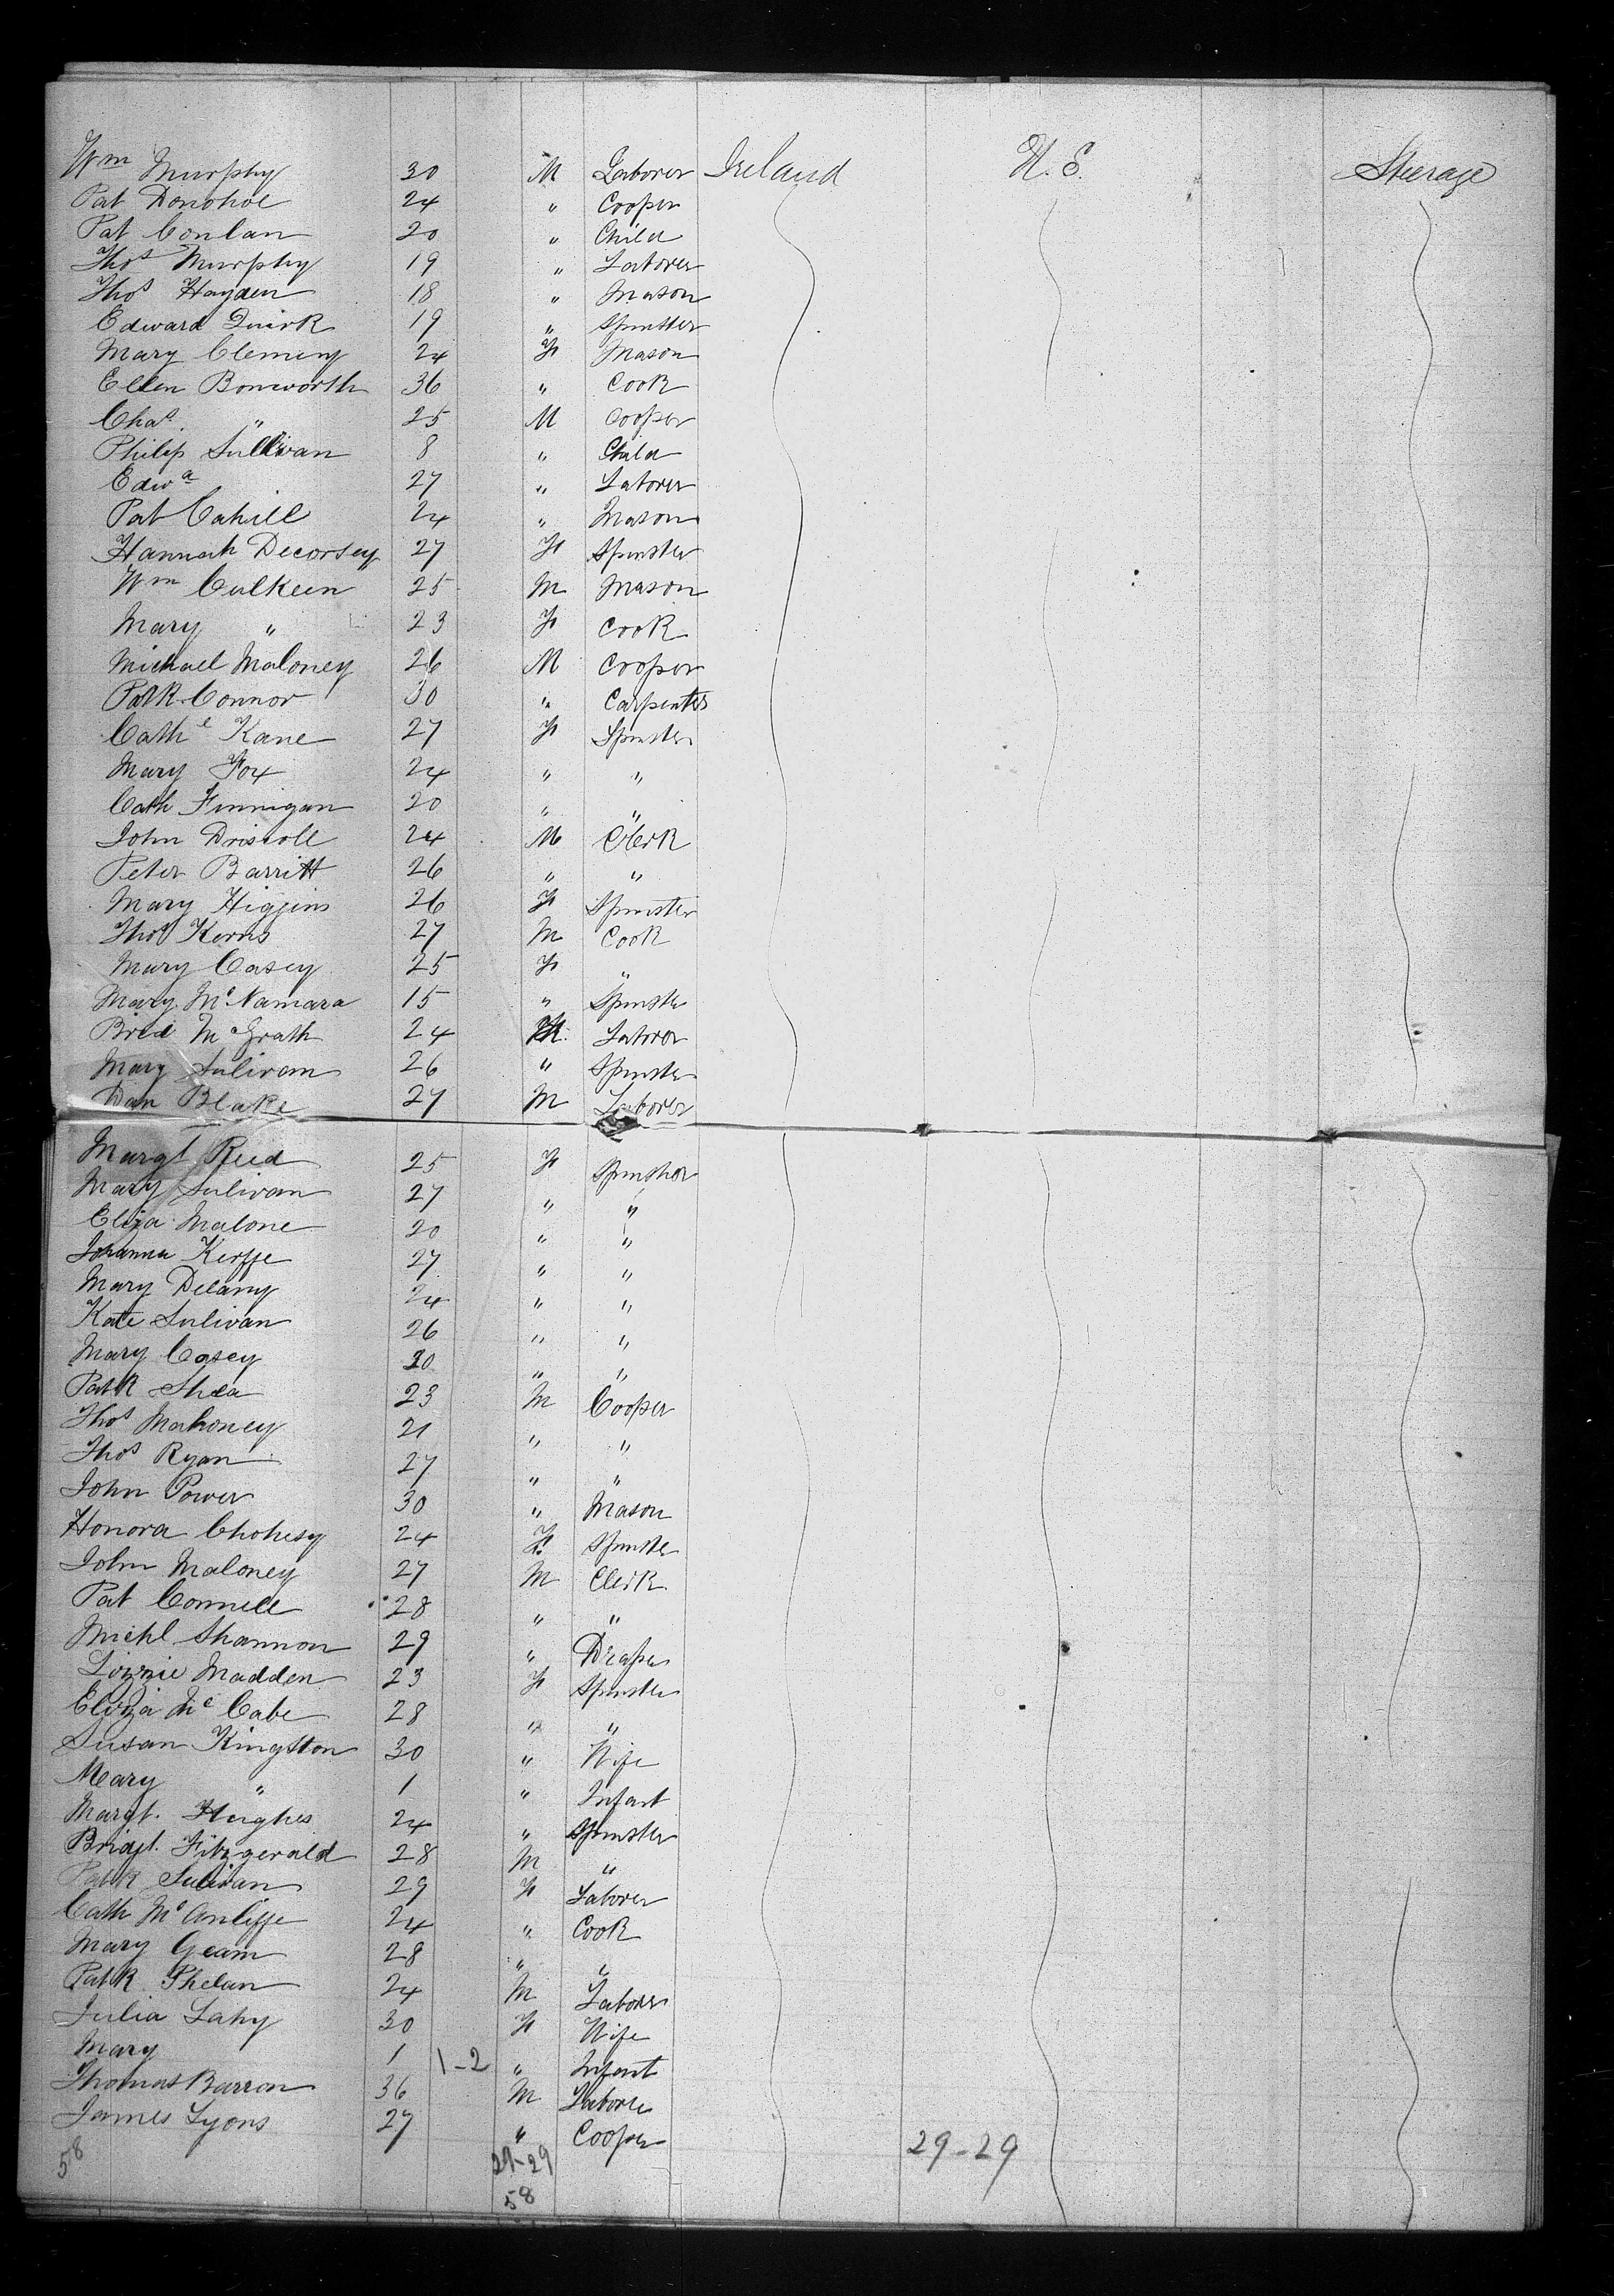 Wm Murphy 30 M Laborer Ireland U.S. Steerage
Pat Donohoe 24 " Cooper
Pat Conlan 20 " Child
Thos Murphy 19 " Laborer
Thos Hayden 18 " Mason
Edward Quirk 19 " Spinster
Mary Clemeny 24 F Mason
Ellen Bonworth 36 " Cook
Chas. " 25 M Cooper
Philip Sullivan 8 " Child
Edwd 27 " Laborer
Pat Cahill 24 " Mason
Hannah Decorsey 27 F Spinster
Wm Culkeen 25 M Mason
Mary " 23 F Cook
Michael Maloney 26 M Cooper
Patk Connor 30 " Carpenter
Cathe Kane 27 F Spinster
Mary Fox 24 " "
Cath Finnigan 20 " "
John Driscoll 24 M Clerk
Peter Barritt 26 " "
Mary Higgins 26 F Spinster
Thos Kerns 27 M Cook
Mary Casey 25 F "
Mary McNamara 15 " Spinster
Brid McGrath 24 Laborer
Mary Sulivan 26 " Spinster
Dan Blake 27 M Laborer
Margt Reed 25 F Spinster
Mary Sulivan 27 " "
Eliza Malone 20 " "
Johanna Keiffe 27 " "
Mary Delany 24 " "
Kate Sulivan 26 " "
Mary Casey 20 " "
Patk Shea 23 M Cooper
Thos Mahoney 21 " "
Thos Ryan 27 " "
John Power 30 " Mason
Honora Chohesy 24 F Spinster
John Maloney 27 M Clerk
Pat Connell 28 " "
Michl Shannon 29 " Draper
Lizzie Madden 23 F Spinster
Eliza McCabe 28 " "
Susan Kingston 30 " Wife
Mary " 1 " Infant
Margt. Hughes 24 " Spinster
Bridgt. Fitzgerald 28 M "
Patk Sulivan 29 F Laborer
Cath McAuliffe 24 " Cook
Mary Geam 28 " "
Patk Phelan 24 M Laborer
Julia Lahy 30 F Wife
Mary 1 1-2 " Infant
Thomas Barron 36 M Laborer
James Lyons 27 " Cooper
58 29-29 29-29
58